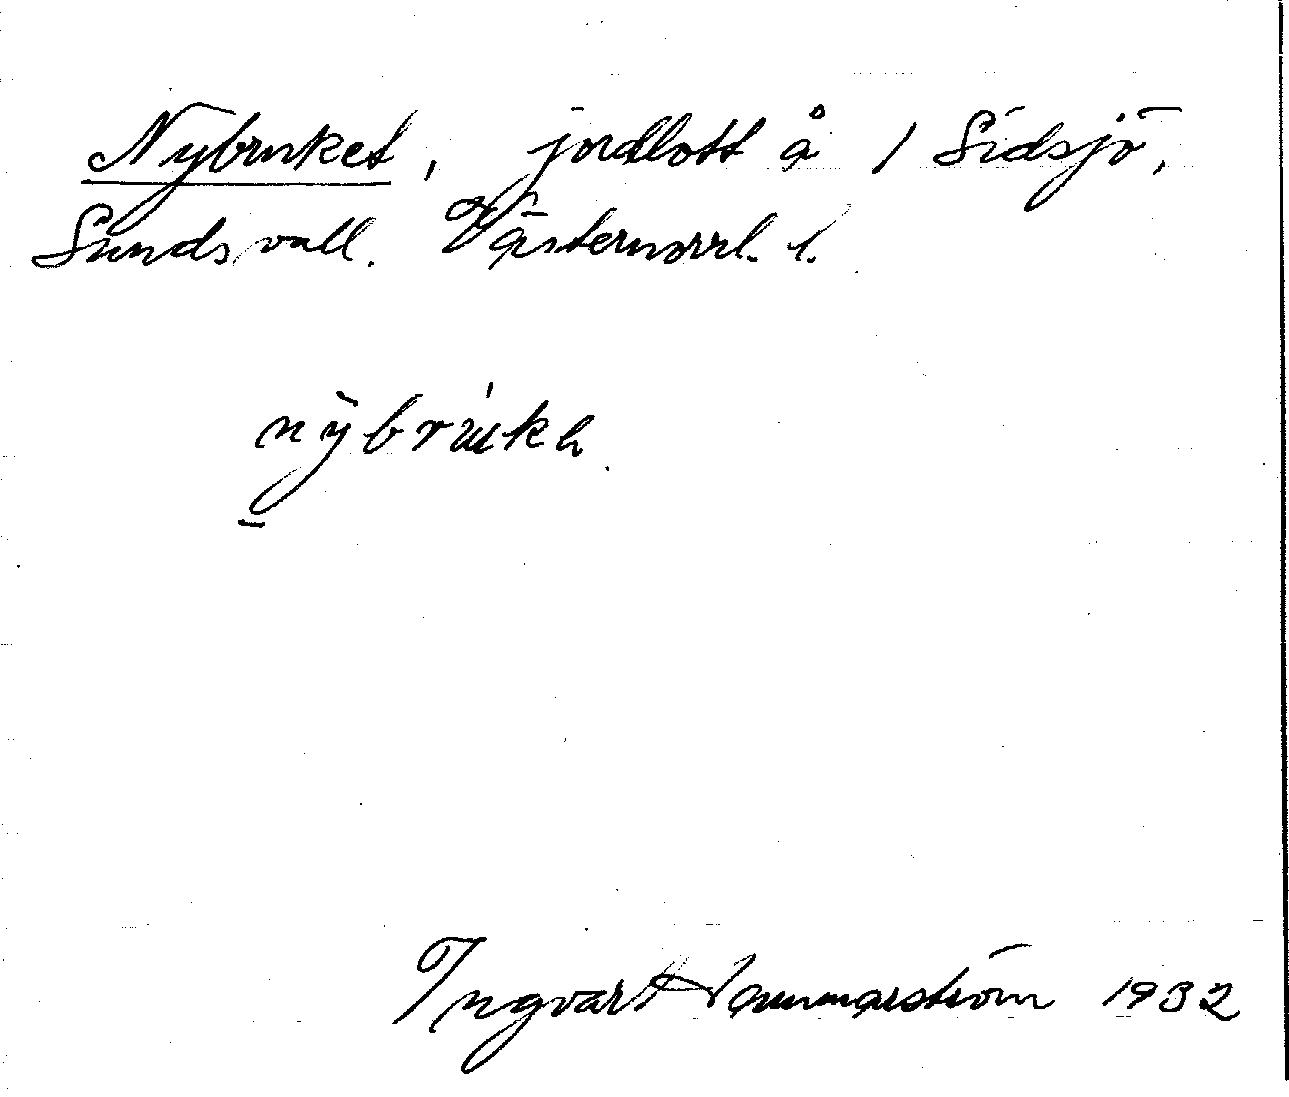 Nybruket, jordlott å 1 Sidsjö,
Sundsvall. Västernorrl. l.
Ingvar Hammarström 1932